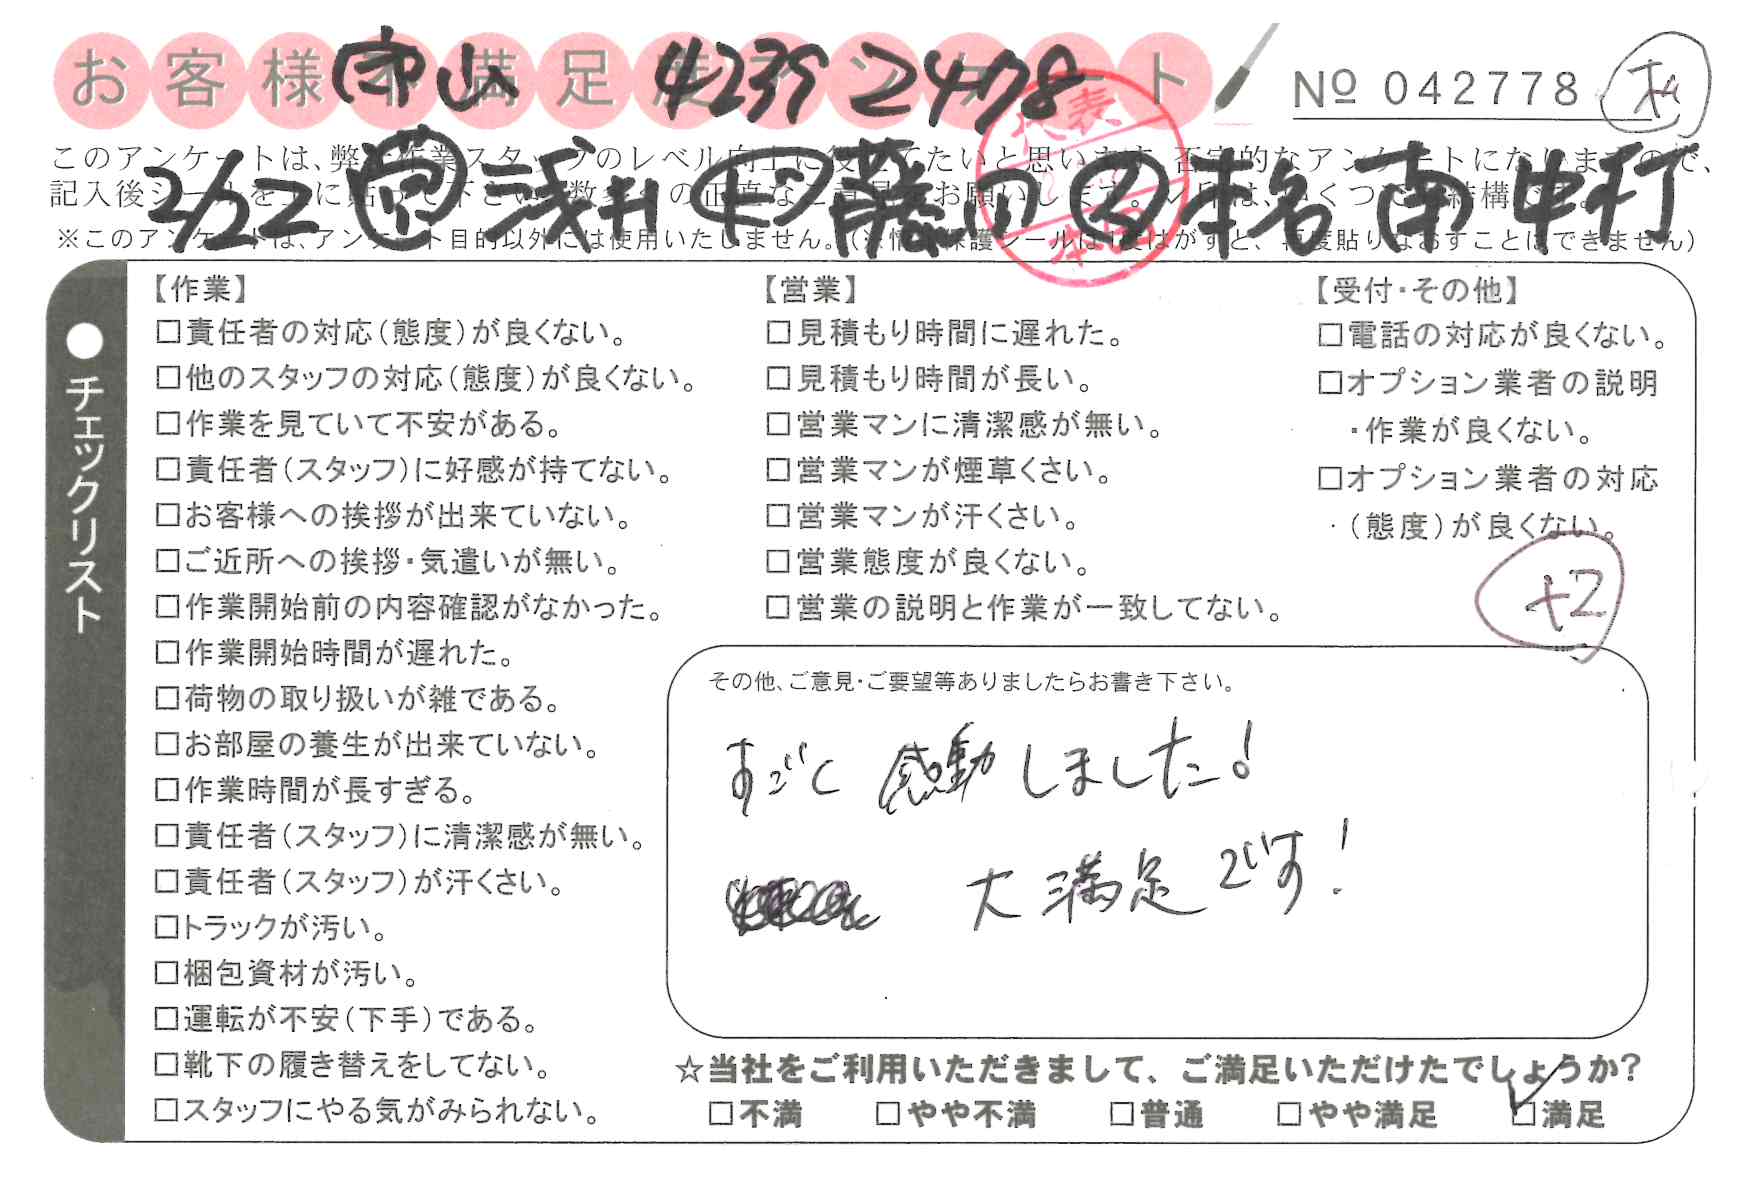 お客様不満足度アンケート
㊞山 4235 2478
No 042778
このアンケートは、弊社作業スタッフのレベル向上に役立てたいと思います。否定的なアンケートになりますので、
記入後シールを上に貼って下さい。数多くの正直なご意見をお願いします。レ印は、いくつでも結構です。
2/22 浅川 藤田 椎名 南 中村
※このアンケートは、アンケート目的以外には使用いたしません。(※情報保護シールは1度はがすと、再度貼りなおすことはできません)
代表
本田
●チェックリスト
【作業】
□責任者の対応(態度)が良くない。
□他のスタッフの対応(態度)が良くない。
□作業を見ていて不安がある。
□責任者(スタッフ)に好感が持てない。
□お客様への挨拶が出来ていない。
□ご近所への挨拶・気遣いが無い。
□作業開始前の内容確認がなかった。
□作業開始時間が遅れた。
□荷物の取り扱いが雑である。
□お部屋の養生が出来ていない。
□作業時間が長すぎる。
□責任者(スタッフ)に清潔感が無い。
□責任者(スタッフ)が汗くさい。
□トラックが汚い。
□梱包資材が汚い。
□運転が不安(下手)である。
□靴下の履き替えをしてない。
□スタッフにやる気がみられない。
【営業】
□見積もり時間に遅れた。
□見積もり時間が長い。
□営業マンに清潔感が無い。
□営業マンが煙草くさい。
□営業マンが汗くさい。
□営業態度が良くない。
□営業の説明と作業が一致してない。
【受付・その他】
□電話の対応が良くない。
□オプション業者の説明
・作業が良くない。
□オプション業者の対応
・(態度)が良くない。
+2
その他、ご意見・ご要望等ありましたらお書き下さい。
すごく 感動しました!
大満足です!
☆当社をご利用いただきまして、ご満足いただけたでしょうか?
□不満 □やや不満 □普通 □やや満足 ☑満足